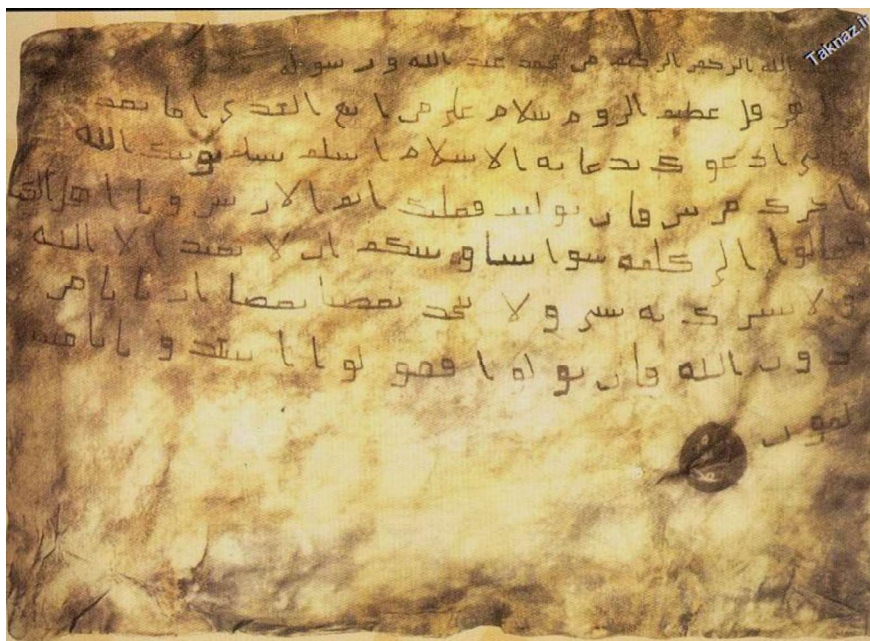 Taknaz.ir
الله الرحمن الرحيم من محمد عبد الله ورسوله
هرقل عظيم الروم سلام على من اتبع الهدى اما بعد
فانى ادعوك بدعاية الاسلام اسلم تسلم يوتك الله
اجرك مرتين فان توليت فعليك اثم الاريسين ويا اهل الكتب
تعالوا الى كلمة سوا بيننا وبينكم ان لا نعبد الا الله
ولا نشرك به شى ولا يتخذ بعضنا بعضا اربابا من
دون الله فان تولوا فقولوا اشهدوا بانا مس
لمون